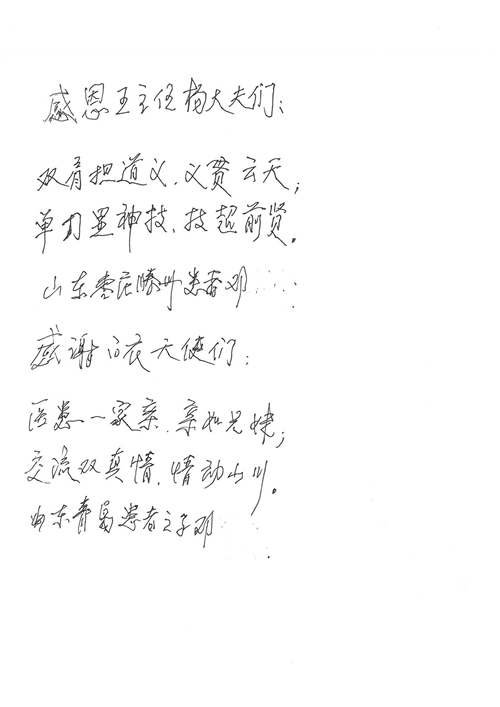 感恩王主任杨大夫们：
双肩担道义，义贯云天；
单刀显神技，技超前贤。
山东枣庄滕州患者邓
感谢白衣天使们：
医患一家亲，亲如兄姨；
交流双真情，情动山川。
山东青岛患者之子邓